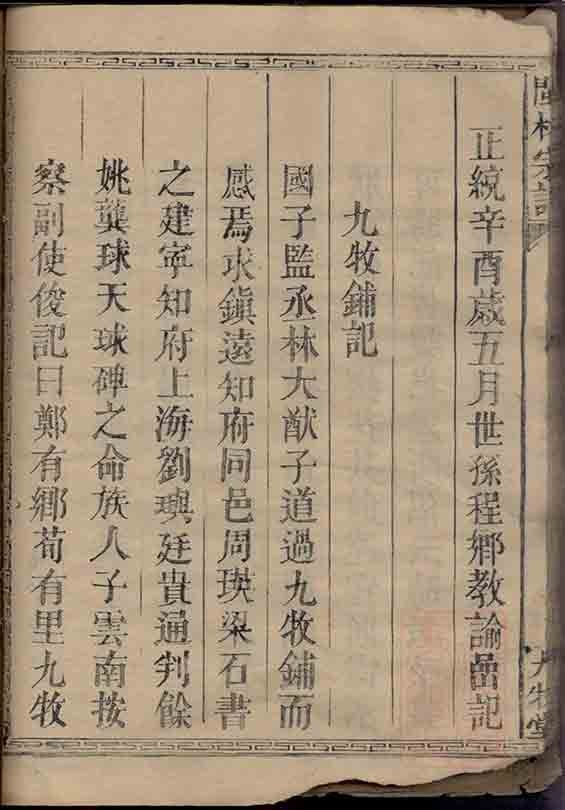 正統辛酉歲五月世孫程鄉教諭嵒記
九牧鋪記
國子監丞林大猷子道過九牧鋪而
感焉求鎮遠知府同邑周瑛梁石書
之建寧知府上海劉璵廷貴通判餘
姚龔球天球碑之命族人子雲南按
察副使俊記曰鄭有鄉荀有里九牧
九牧堂